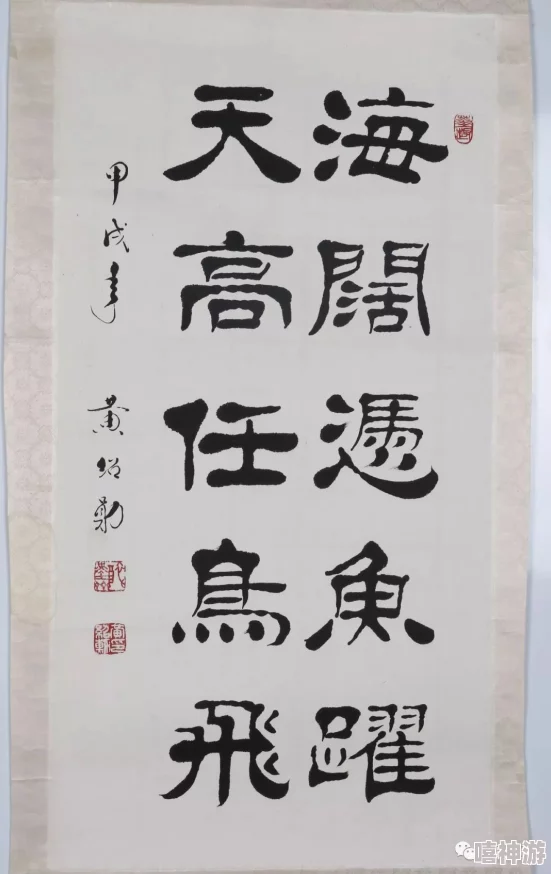 海闊憑魚躍
天高任鳥飛
甲戌年 黄绍勤
嘻神游